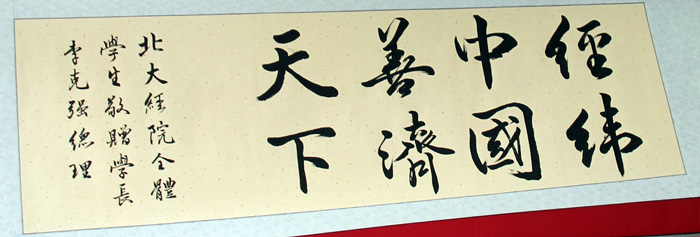 經緯
中國
善濟
天下
北大經院全體
學生敬贈學長
李克强總理